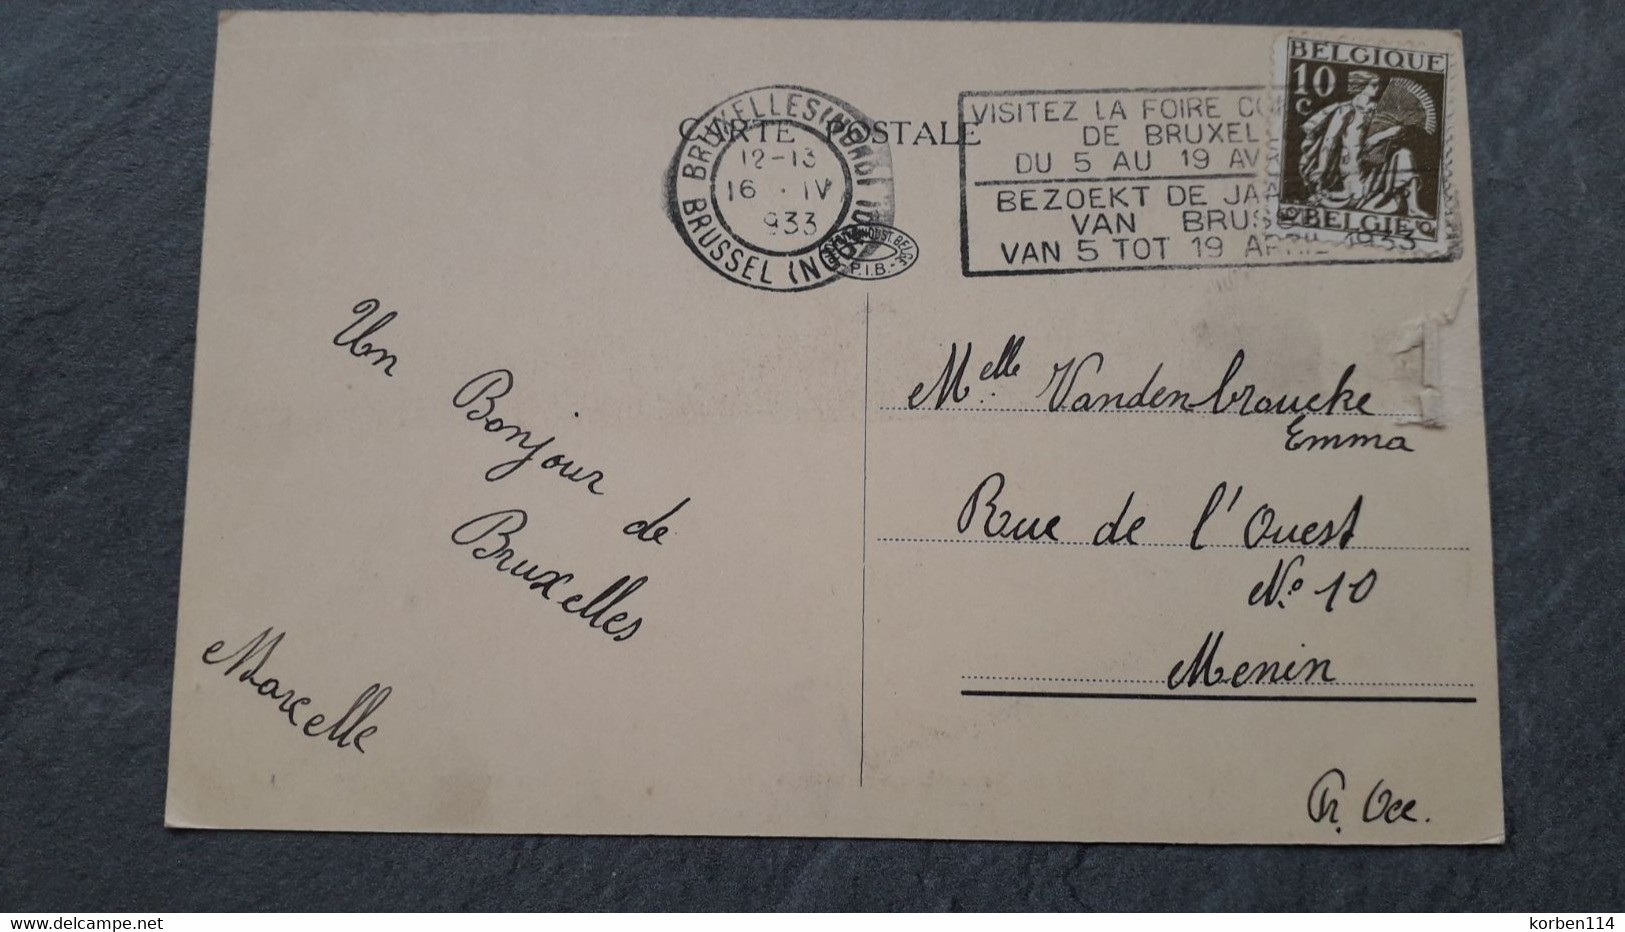 CARTE POSTALE
BRUXELLES (NORD)
12-13
16 . IV
933
BRUSSEL (NOORD)
P.I.B.
VISITEZ LA FOIRE CO
DE BRUXEL
DU 5 AU 19 AV
BEZOEKT DE JAA
VAN BRUSS
VAN 5 TOT 19 APRIL 1933
BELGIQUE
10
c
BELGIE
Un Bonjour de
Bruxelles
Marcelle
Melle Vandenbroucke
Emma
Rue de l'Ouest
No 10
Menin
Fl. Occ.
delcampe.net
korben114